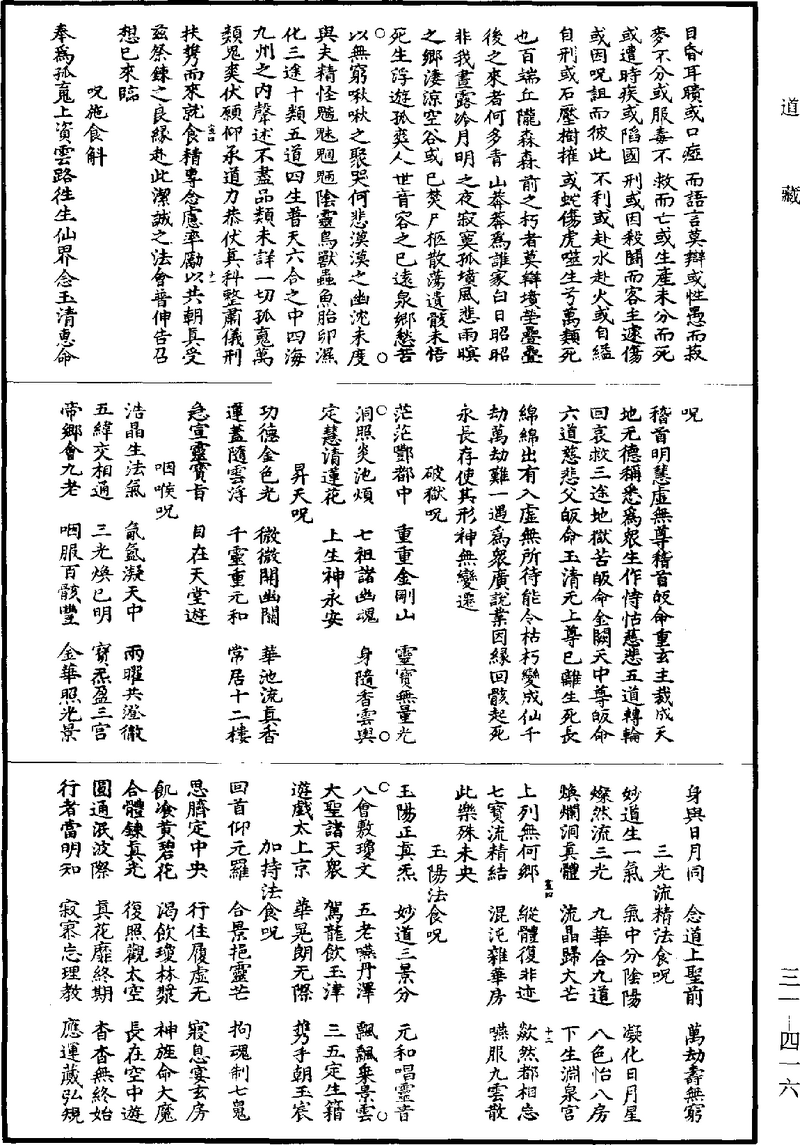 道藏
三一—四一六
目昏耳聵或口瘂而語言莫辯或性愚而菽
麥不分或服毒不救而亡或生產未分而死
或遭時疾或陷國刑或因殺鬬而客主遽傷
或因呪詛而彼此不利或赴水赴火或自縊
自刑或石壓樹摧或蛇傷虎噬生兮萬類死
也百端丘隴森森前之朽者莫辯墳塋疊疊
後之來者何多青山莽莽為誰家白日昭昭
非我晝露冷月明之夜寂寞孤墳風悲雨暝
之鄉淒涼空谷或已焚尸柩散蕩遺骸未悟
死生浮遊孤爽人世音容之已遠泉鄉愁苦
以無窮啾啾之聚哭何悲漠漠之幽沈未度
與夫精怪魑魅魍魎陰靈鳥獸蟲魚胎卵濕
化三途十類五道四生普天六合之中四海
九州之內聲述不盡品類未詳一切孤魂萬
類鬼爽伏願仰承道力恭伏真科整肅儀刑
扶攜而來就食精專念慮率勵以共朝真受
茲祭鍊之良緣赴此潔誠之法會普伸告召
想已來臨
呪施食斛
奉為孤魂上資雲路徃生仙界念玉清惠命
呪
稽首明慧虛無尊稽首皈命重玄主裁成天
地无德稱悉為衆生作恃怙慈悲五道轉輪
回哀救三途地獄苦皈命金闕天中尊皈命
六道慈悲父皈命玉清无上尊已離生死長
綿綿出有入虛無所待能令枯朽變成仙千
劫萬劫難一遇為衆廣說業因緣回骸起死
永長存使其形神無變遷
破獄呪
茫茫酆都中　重重金剛山　靈寶無量光
洞照炎池煩　七祖諸幽魂　身隨香雲輿
定慧清蓮花　上生神永安
昇天呪
功德金色光　微微開幽關　華池流真香
蓮蓋隨雲浮　千靈重元和　常居十二樓
急宣靈寶旨　自在天堂遊
咽喉呪
浩晶生法氣　氤氳凝天中　兩曜共澄徹
五緯交相通　三光煥已明　寶炁盈三宮
帝鄉會九老　咽服百骸豐　金華照光景
身與日月同　念道上聖前　萬劫壽無窮
三光流精法食呪
妙道生一氣　氣中分陰陽　凝化日月星
燦然流三光　九華合九道　八色怡八房
煥爛洞真體　流晶歸大芒　下生淵泉宮
上列無何鄉　縱體復非迹　歘然都相忘
七寶流精結　混沌雜華房　嚥服九雲散
此樂殊未央
玉陽法食呪
玉陽正真炁　妙道三景分　元和唱靈音
八會敷瓊文　五老嚥丹澤　飄飄乘景雲
大聖諸天衆　駕龍飲玉津　三五定生籍
遊戲太上京　華晃朗无際　攜手朝玉宸
加持法食呪
回首仰元羅　合景挹靈芒　拘魂制七魄
思臍定中央　行住履虛无　寢息宴玄房
飢飡黃碧花　渴飲瓊林漿　神旌命大魔
合體鍊真光　復照觀太空　長在空中遊
圓通泯波際　真花靡終期　杳杳無終始
行者當明知　寂寥忘理教　應運葳弘規